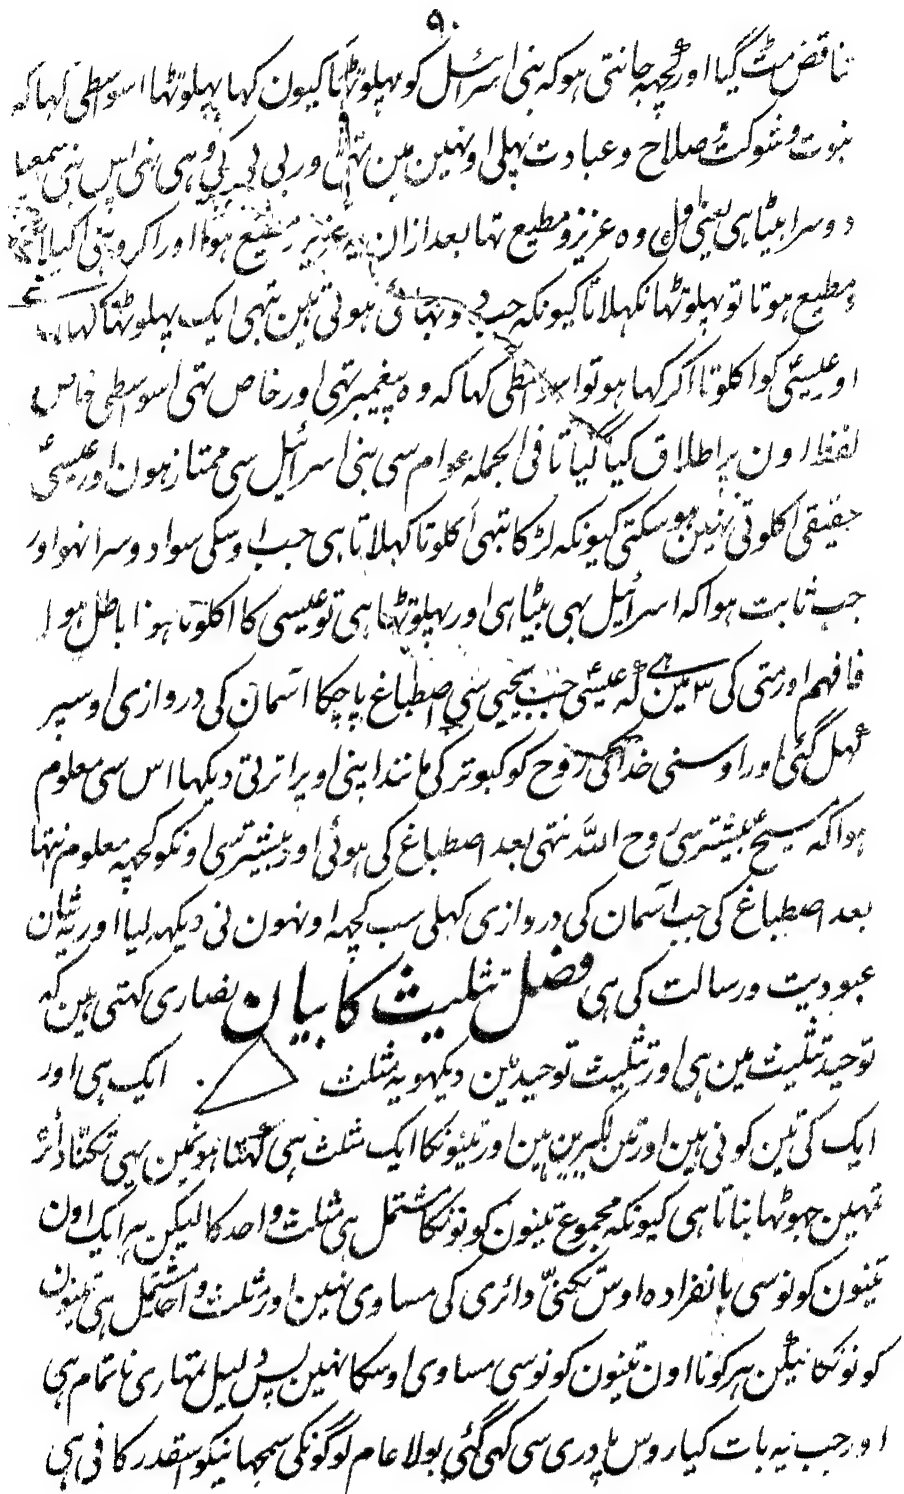 ۹۰
تناقض مٹ گیا اور کچھہ جانتی ہو کہ بنی اسرائیل کو پہلوٹھا کیون کہا پہلوٹھا اسواسطی کہا کہ
نبوت و شوکت و صلاح و عبادت پہلی اونہین مین تہی اور بی بی کی وہی بنی اس بنی سمعیا
دوسرا بیٹا ہی یعنی اول وہ عزیز و مطیع تہا بعد ازان یہ عزیز مطیع ہوا اور اکروہی اکیلا
مطیع ہوتا تو پہلوٹھا نکہلاتا کیونکہ جب دو بہائی ہوتی ہین تبہی ایک پہلوٹھا کہا
اور عیسیٰؑ کو اکلوتا اکر کہا ہو تو اسواسطی کہا کہ وہ پیغمبر تہی اور خاص تہی اسواسطی خاص
لفظ اون پر اطلاق کیا گیا تا فی الجملہ عوام سی بنی اسرائیل سی ممتاز ہون اور عیسیؑ
حقیقی اکلوتی نہین ہو سکتی کیونکہ لڑکا تبہی اکلوتا کہلاتا ہی جب اوسکی سوا دوسرا نہو اور
جب ثابت ہوا کہ اسرائیل بہی بیٹا ہی اور پہلوٹھا ہی تو عیسی کا اکلوتا ہونا باطل ہوا
فافہم اور متی کی ۳ مین ہے کہ عیسیؑ جب یحیی سی اصطباغ پا چکا آسمان کی دروازی اوسپر
کہل گئی اور اوسنی خدا کی روح کو کبوتر کی مانند اپنی اوپر اترتی دیکہا اس سی معلوم
ہوا کہ مسیحؑ پیشتر سی روح اللہ نتہی بعد اصطباغ کی ہوئی اور پیشتر سی اونکو کچہہ معلوم نتہا
بعد اصطباغ کی جب آسمان کی دروازی کہلی سب کچہہ اونہون نی دیکہہ لیا اور یہ شان
عبودیت و رسالت کی ہی فصل تثلیث کا بیان نصاری کہتی ہین کہ
توحید تثلیث مین ہی اور تثلیث توحید مین دیکہو یہ مثلث ایک ہی اور
ایک کی تین کونی ہین اور تین لکیرین ہین اور تینونکا ایک مثلث ہی کہتا ہون مین یہی تکنّا دائرہ
تمہین جہوٹہا بناتا ہی کیونکہ مجموع تینون کونونکا مشتمل ہی مثلث واحد کا لیکن ہر ایک اون
تینون کونو سی بانفرادہ اوس تکنّی دائری کی مساوی نہین اور مثلث واحد مشتمل ہی تینون
کونونکا لیکن ہر کونا اون تینون کونو سی مساوی اوسکا نہین پس دلیل تمہاری ناتمام ہی
اور جب یہ بات کیا روس پادری سی کہی گئی بولا عام لوگونکی سمجہانیکو اسقدر کافی ہی